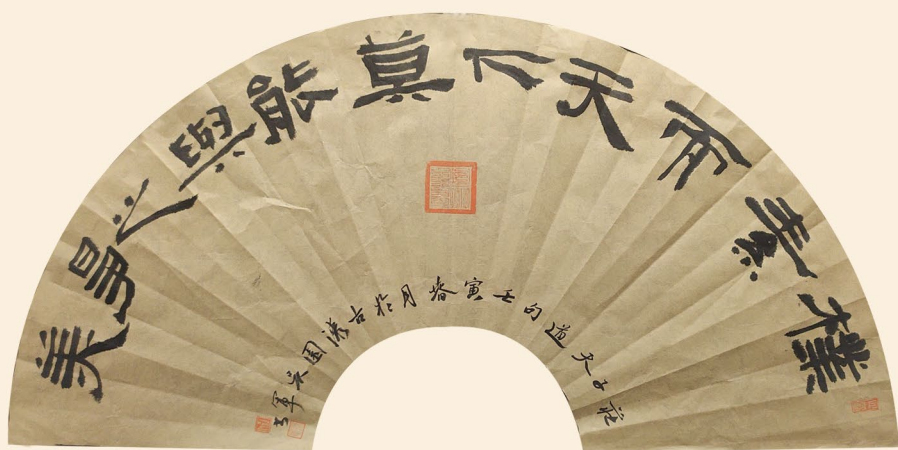 樸素而天下莫能與之爭美
莊子天道句壬寅春月於古